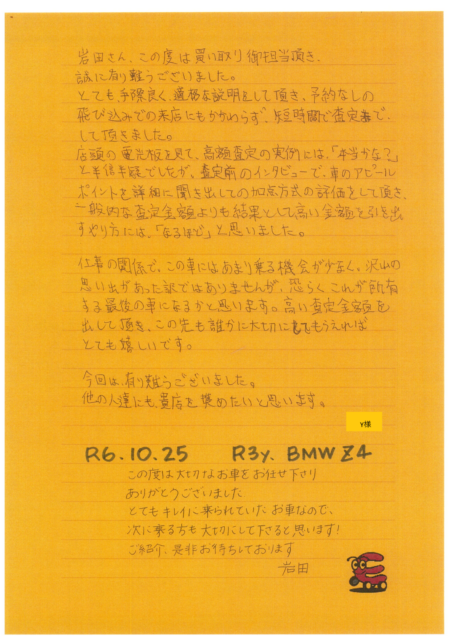 岩田さん、この度は買い取り御担当頂き、
誠に有り難うございました。
とても手際良く、適格な説明をして頂き、予約なしの
飛び込みでの来店にもかかわらず、短時間で査定まで、
して頂きました。
店頭の電光板を見て、高額査定の実例には、「本当かな?」
と半信半疑でしたが、査定前のインタビューで、車のアピール
ポイントを詳細に聞き出しての加点方式の評価をして頂き、
一般的な査定金額よりも結果として高い金額を引き出
すやり方には、「なるほど」と思いました。
仕事の関係で、この車にはあまり乗る機会が少なく、沢山の
思い出があった訳ではありませんが、恐らくこれが所有
する最後の車になるかと思います。高い査定金額を
出して頂き、この先も誰かに大切にしてもらえれば
とても嬉しいです。
今回は、有り難うございました。
他の人達にも、貴店を奨めたいと思います。
Y様
R6.10.25 R3y. BMW Z4
この度は大切なお車をお任せ下さり
ありがとうございました
とてもキレイに乗られていたお車なので、
次に乗る方も大切にして下さると思います!
ご紹介、是非お待ちしております
岩田